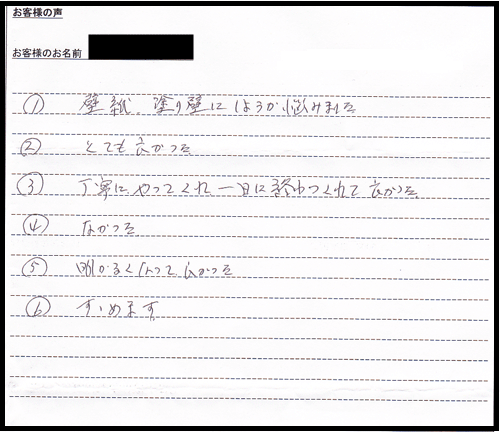 お客様の声
お客様のお名前
① 壁紙、塗り壁にしようか悩みました
② とても良かった
③ 丁寧にやってくれ一日に終わってくれて良かった
④ なかった
⑤ 明かるくなって良かった
⑥ すゝめます